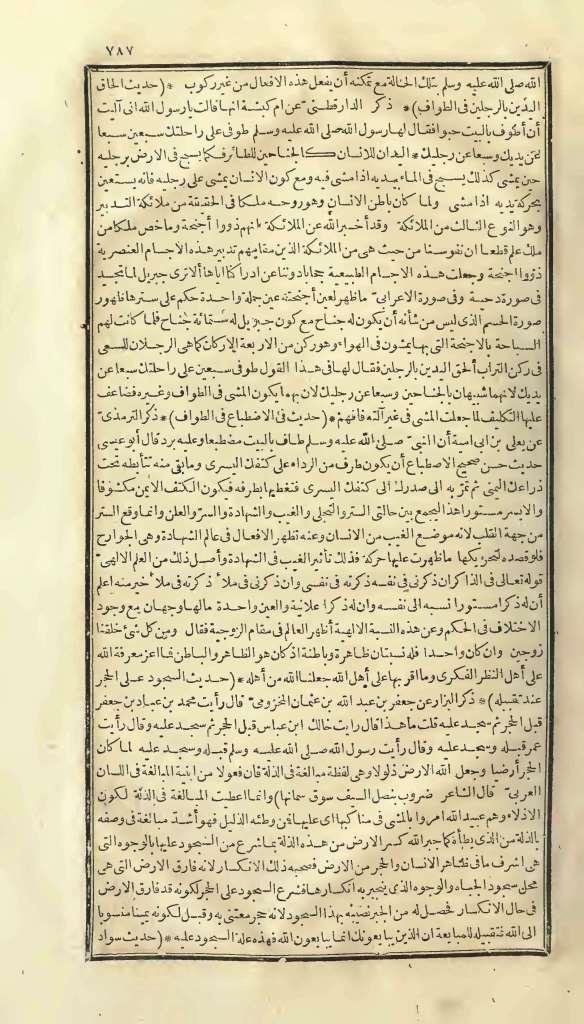 ٧٨٧
الله صلى الله عليه وسلم بتلك الحالة مع تمكنه أن يفعل هذه الافعال من غير ركوب *(حديث الحاق
اليدين بالرجلين فى الطواف)* ذكر الدارقطنى عن ام كبشة انها قالت يا رسول الله انى آليت
أن أطوف بالبيت حبوا فقال لها رسول الله صلى الله عليه وسلم طوفى على راحلتك سبعين سبعا
عن يديك وسبعا عن رجليك * اليدان للانسان كالجناحين للطائر فكما يسبح فى الارض برجليه
حين يمشى كذلك يسبح فى الماء بيديه اذا مشى فيه ومع كون الانسان يمشى على رجليه فانه يستعين
بحركة يديه اذا مشى ولما كان باطن الانسان وهو روحه ملكا فى الحقيقة من ملائكة التدبير
وهو النوع الثالث من الملائكة وقد أخبر الله عن الملائكة بانهم ذووا أجنحة وما خص ملكا من
ملك علم قطعا ان نفوسنا من حيث هى من الملائكة الذين مقامهم تدبير هذه الاجسام العنصرية
ذووا أجنحة وجعلت هذه الاجسام الطبيعية حجابا دوننا عن ادراكنا اياها ألا ترى جبريل لما تجسد
فى صورة دحية وفى صورة الاعرابى ما ظهر لعين أجنحته عين جملة واحدة حكم على سترها ظهور
صورة الجسم الذى ليس من شأنه أن يكون له جناح مع كون جبريل له ستمائة جناح فلما كانت لهم
السباحة بالاجنحة التى بها يمشون فى الهواء وهو ركن من الاربعة الاركان كما هى الرجلان للسعى
فى ركن التراب ألحق اليدين بالرجلين فقال لها فى هذا القول طوفى سبعين على راحلتك سبعا عن
يديك لانهما شبيهان بالجناحين وسبعا عن رجليك لان بهما يكون المشى فى الطواف وغيره فضاعف
عليها التكليف لما جعلت المشى فى غير آلته فافهم *(حديث فى الاضطباع فى الطواف)* ذكر الترمذى
عن يعلى بن ابى امية أن النبى صلى الله عليه وسلم طاف بالبيت مضطبعا وعليه برد قال أبو عيسى
حديث حسن صحيح الاضطباع أن يكون طرف من الرداء على كتفك اليسرى وما بقى منه تتأبطه تحت
ذراعك اليمنى ثم تمر به الى صدرك الى كتفك اليسرى فتغطيها بطرفه فيكون الكتف الايمن مكشوفا
والايسر مستورا هذا ليجمع بين حالتى الستر والتجلى والغيب والشهادة والسر والعلن وانما وقع الستر
من جهة القلب لانه موضع الغيب من الانسان وعنه تظهر الافعال فى عالم الشهادة وهى الجوارح
فلو قصده لتحريكها ما ظهرت عليها حركة فذلك تأثير الغيب فى الشهادة وأصل ذلك من العلم الالهى
قوله تعالى فى الذاكر ان ذكرنى فى نفسه ذكرته فى نفسى وان ذكرنى فى ملأ ذكرته فى ملأ خير منه اعلم
أن له ذكرا مستورا نسبه الى نفسه وان له ذكرا علانية والعين واحدة ما لها وجهان مع وجود
الاختلاف فى الحكم وعن هذه النسبة الالهية أظهر العالم فى مقام الزوجية فقال ومن كل شئ خلقنا
زوجين وان كان واحدا فله نسبتان ظاهرة وباطنة اذ كان هو الظاهر والباطن فما اعز معرفة الله
على أهل النظر الفكرى وما اقربها على أهل الله جعلنا الله من أهله *(حديث السجود على الحجر
عند تقبيله)* ذكر البزار عن جعفر بن عبد الله بن عثمان المخزومى قال رأيت محمد بن عباد بن جعفر
قبل الحجر ثم سجد عليه قلت ما هذا قال رايت خالك ابن عباس قبل الحجر ثم سجد عليه وقال رأيت
عمر قبله وسجد عليه وقال رأيت رسول الله صلى الله عليه وسلم قبله وسجد عليه لما كان
الحجر أرضيا وجعل الله الارض ذلولا وهى لفظة مبالغة فى الذلة فان فعولا من ابنية المبالغة فى اللسان
العربى قال الشاعر ضروب بنصل السيف سوق سمانها) وانما اعطيت المبالغة فى الذلة لكون
الاذلاء وهم عبيد الله امروا بالمشى فى مناكبها اى عليها فمن وطئه الذليل فهو أشد مبالغة فى وصفه
بالذلة من الذى يطأه كما جبر الله كسر الارض من هذه الذلة بما شرع من السجود عليها بالوجوه التى
هى اشرف ما فى ظاهر الانسان والحجر من الارض فصحبه ذلك الانكسار لانه فارق الارض التى هى
محل سجود الجباه والوجوه الذى ينجبر به انكسارها فشرع السجود على الحجر لكونه قد فارق الارض
فى حال الانكسار فحصل له من الجبر نصيبه بهذا السجود لانه حجر معتنى به وقبل لكونه يمينا منسوبا
الى الله فتقبيله للمبايعة ان الذين يبايعونك انما يبايعون الله فهذه علة السجود عليه *(حديث سواد